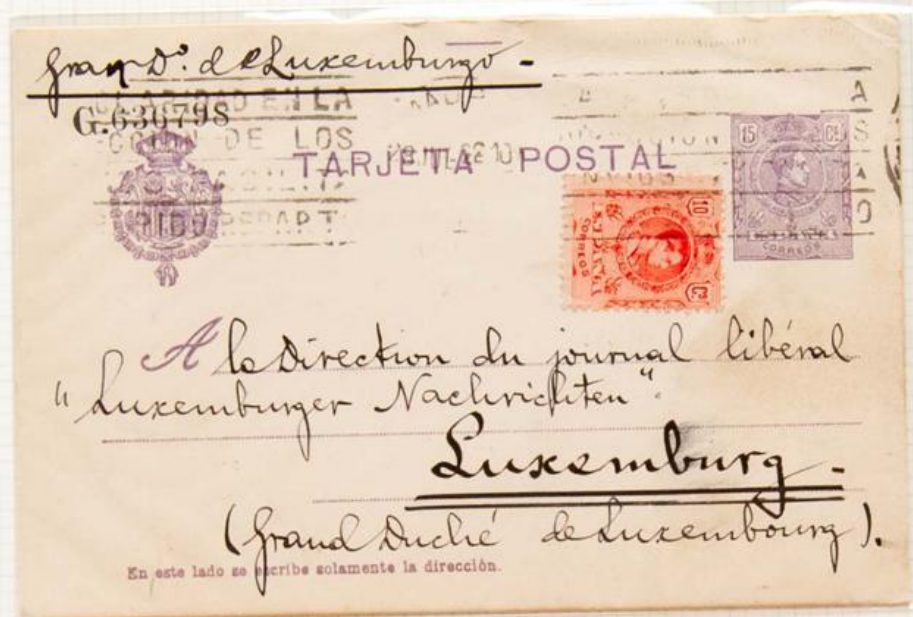 Gran D.º de Luxemburgo -
ARIDAD EN LA
G.636798
DE LOS
JUL 10
TARJETA POSTAL
15 Cs
CORREOS
10
ESPAÑA
CORREOS
A la Direction du journal libéral
"Luxemburger Nachrichten".
Luxemburg -
(Grand Duché de Luxembourg).
En este lado se escribe solamente la dirección.